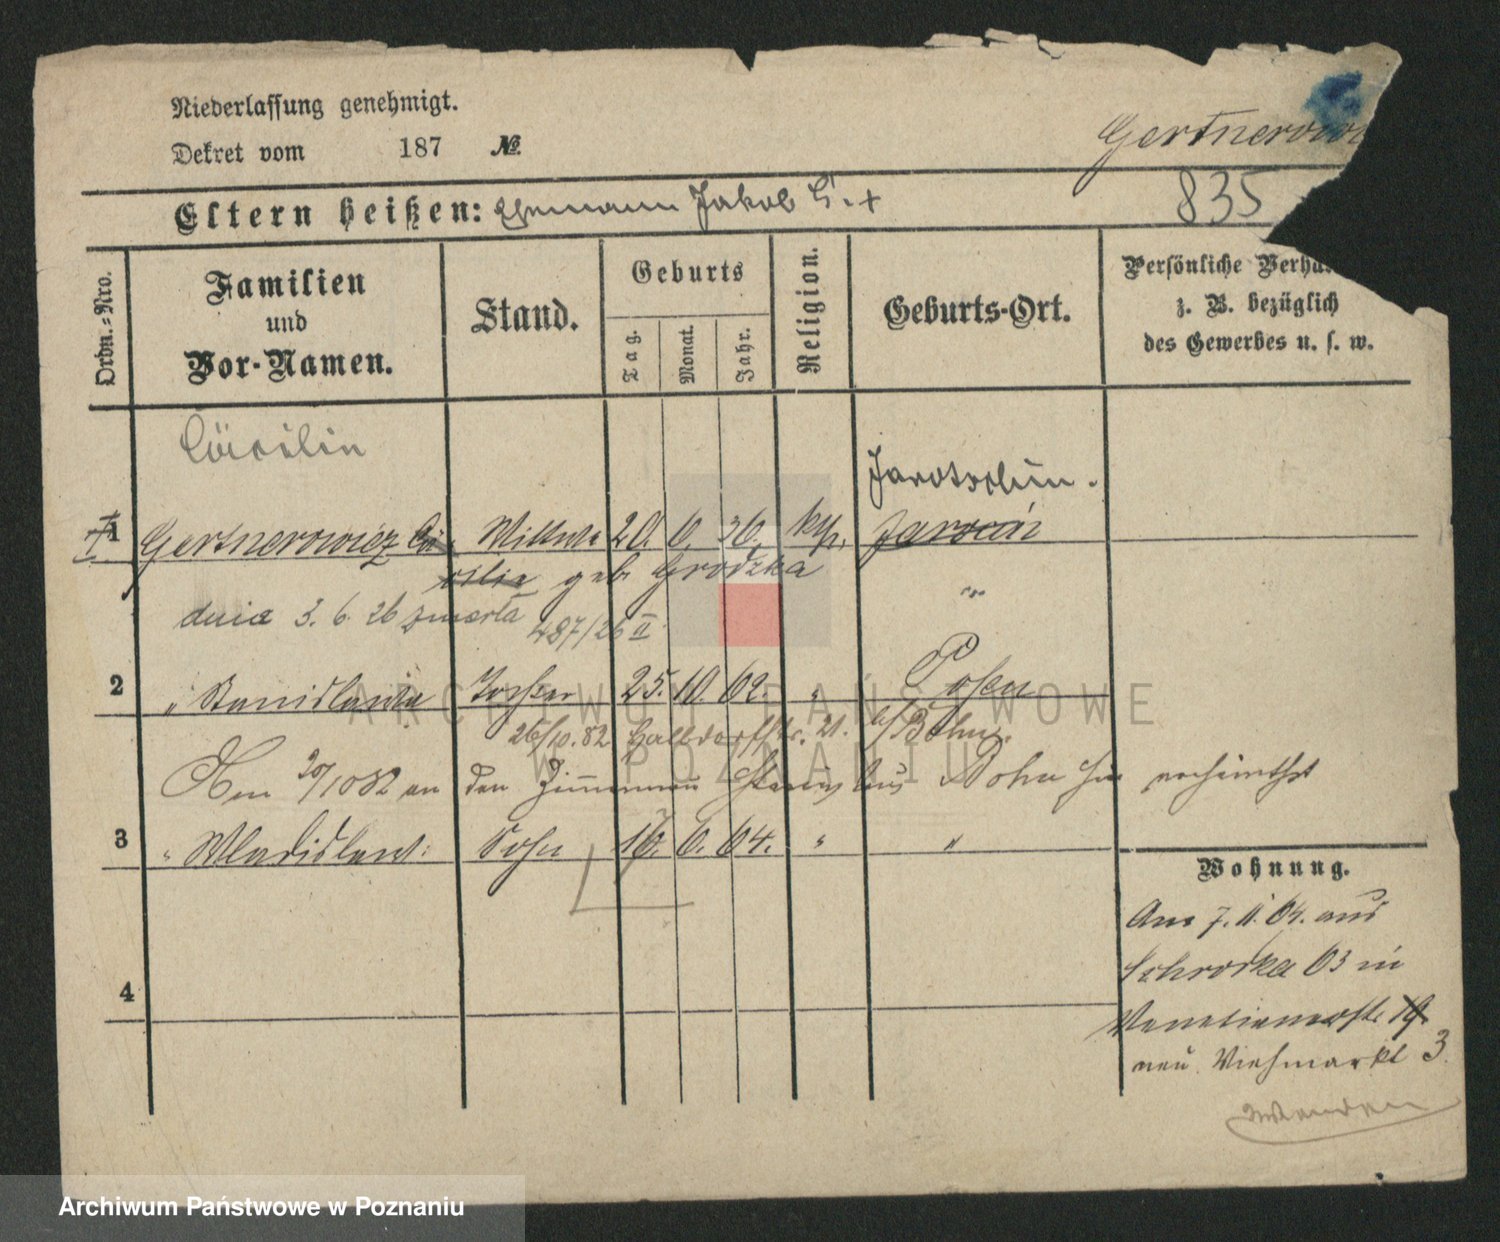 Niederlassung genehmigt.
Dekret vom 187 №
Gertnerowi
835
Eltern heißen: Ehemann Jakob G. +
Ordn.-Nro.
Familien
und
Vor-Namen.
Stand.
Geburts
Tag.
Monat.
Jahr.
Religion.
Geburts-Ort.
Persönliche Verhä
z. B. bezüglich
des Gewerbes u. s. w.
Cäcilie
Jarotschin.
1 Gertnerowicz Cä Wittwe 20. 6. 36. kth. Jarocin
cilia geb Grodzka "
dnia 3. 6. 26 zmarła 487/26 II
2 " Stanislawa Tochter 25. 10. 62. " Posen
26/10. 82 Halbdorfstr. 21. b/Böhm.
Am 20/10 82 an den aus verheirathet
3 " Wladislaus. Sohn 16. 6. 64. " "
Wohnung.
Am 7. 11. 64. aus
Schrodka 63 in
Venetianerstr. 19.
neu Viehmarkt 3.
4
ARCHIWUM PAŃSTWOWE
W POZNANIU
Archiwum Państwowe w Poznaniu